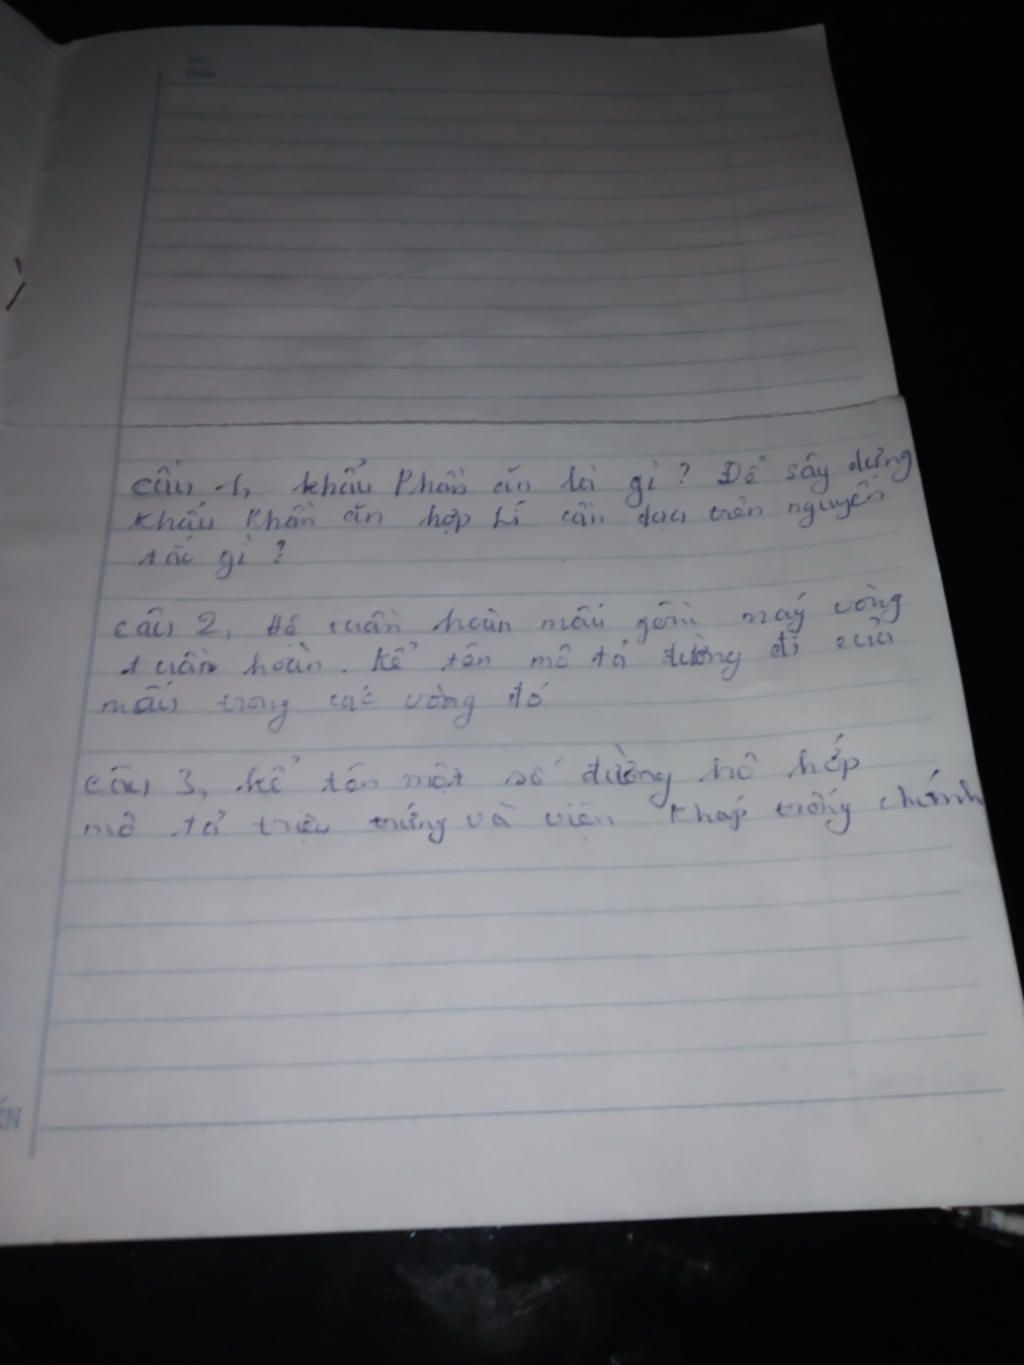 câu 1, khẩu Phần ăn là gì? Để sây dựng
khẩu Phần ăn hợp Lí cần dựa trên nguyên
tắc gì?
câu 2, Hệ tuần hoàn máu gồm mấy vòng
tuần hoàn. Kể tên mô tả đường đi của
máu trong các vòng đó
câu 3, kể tên một số đường hô hấp
mô tả triệu trứng và viện Pháp trống chính